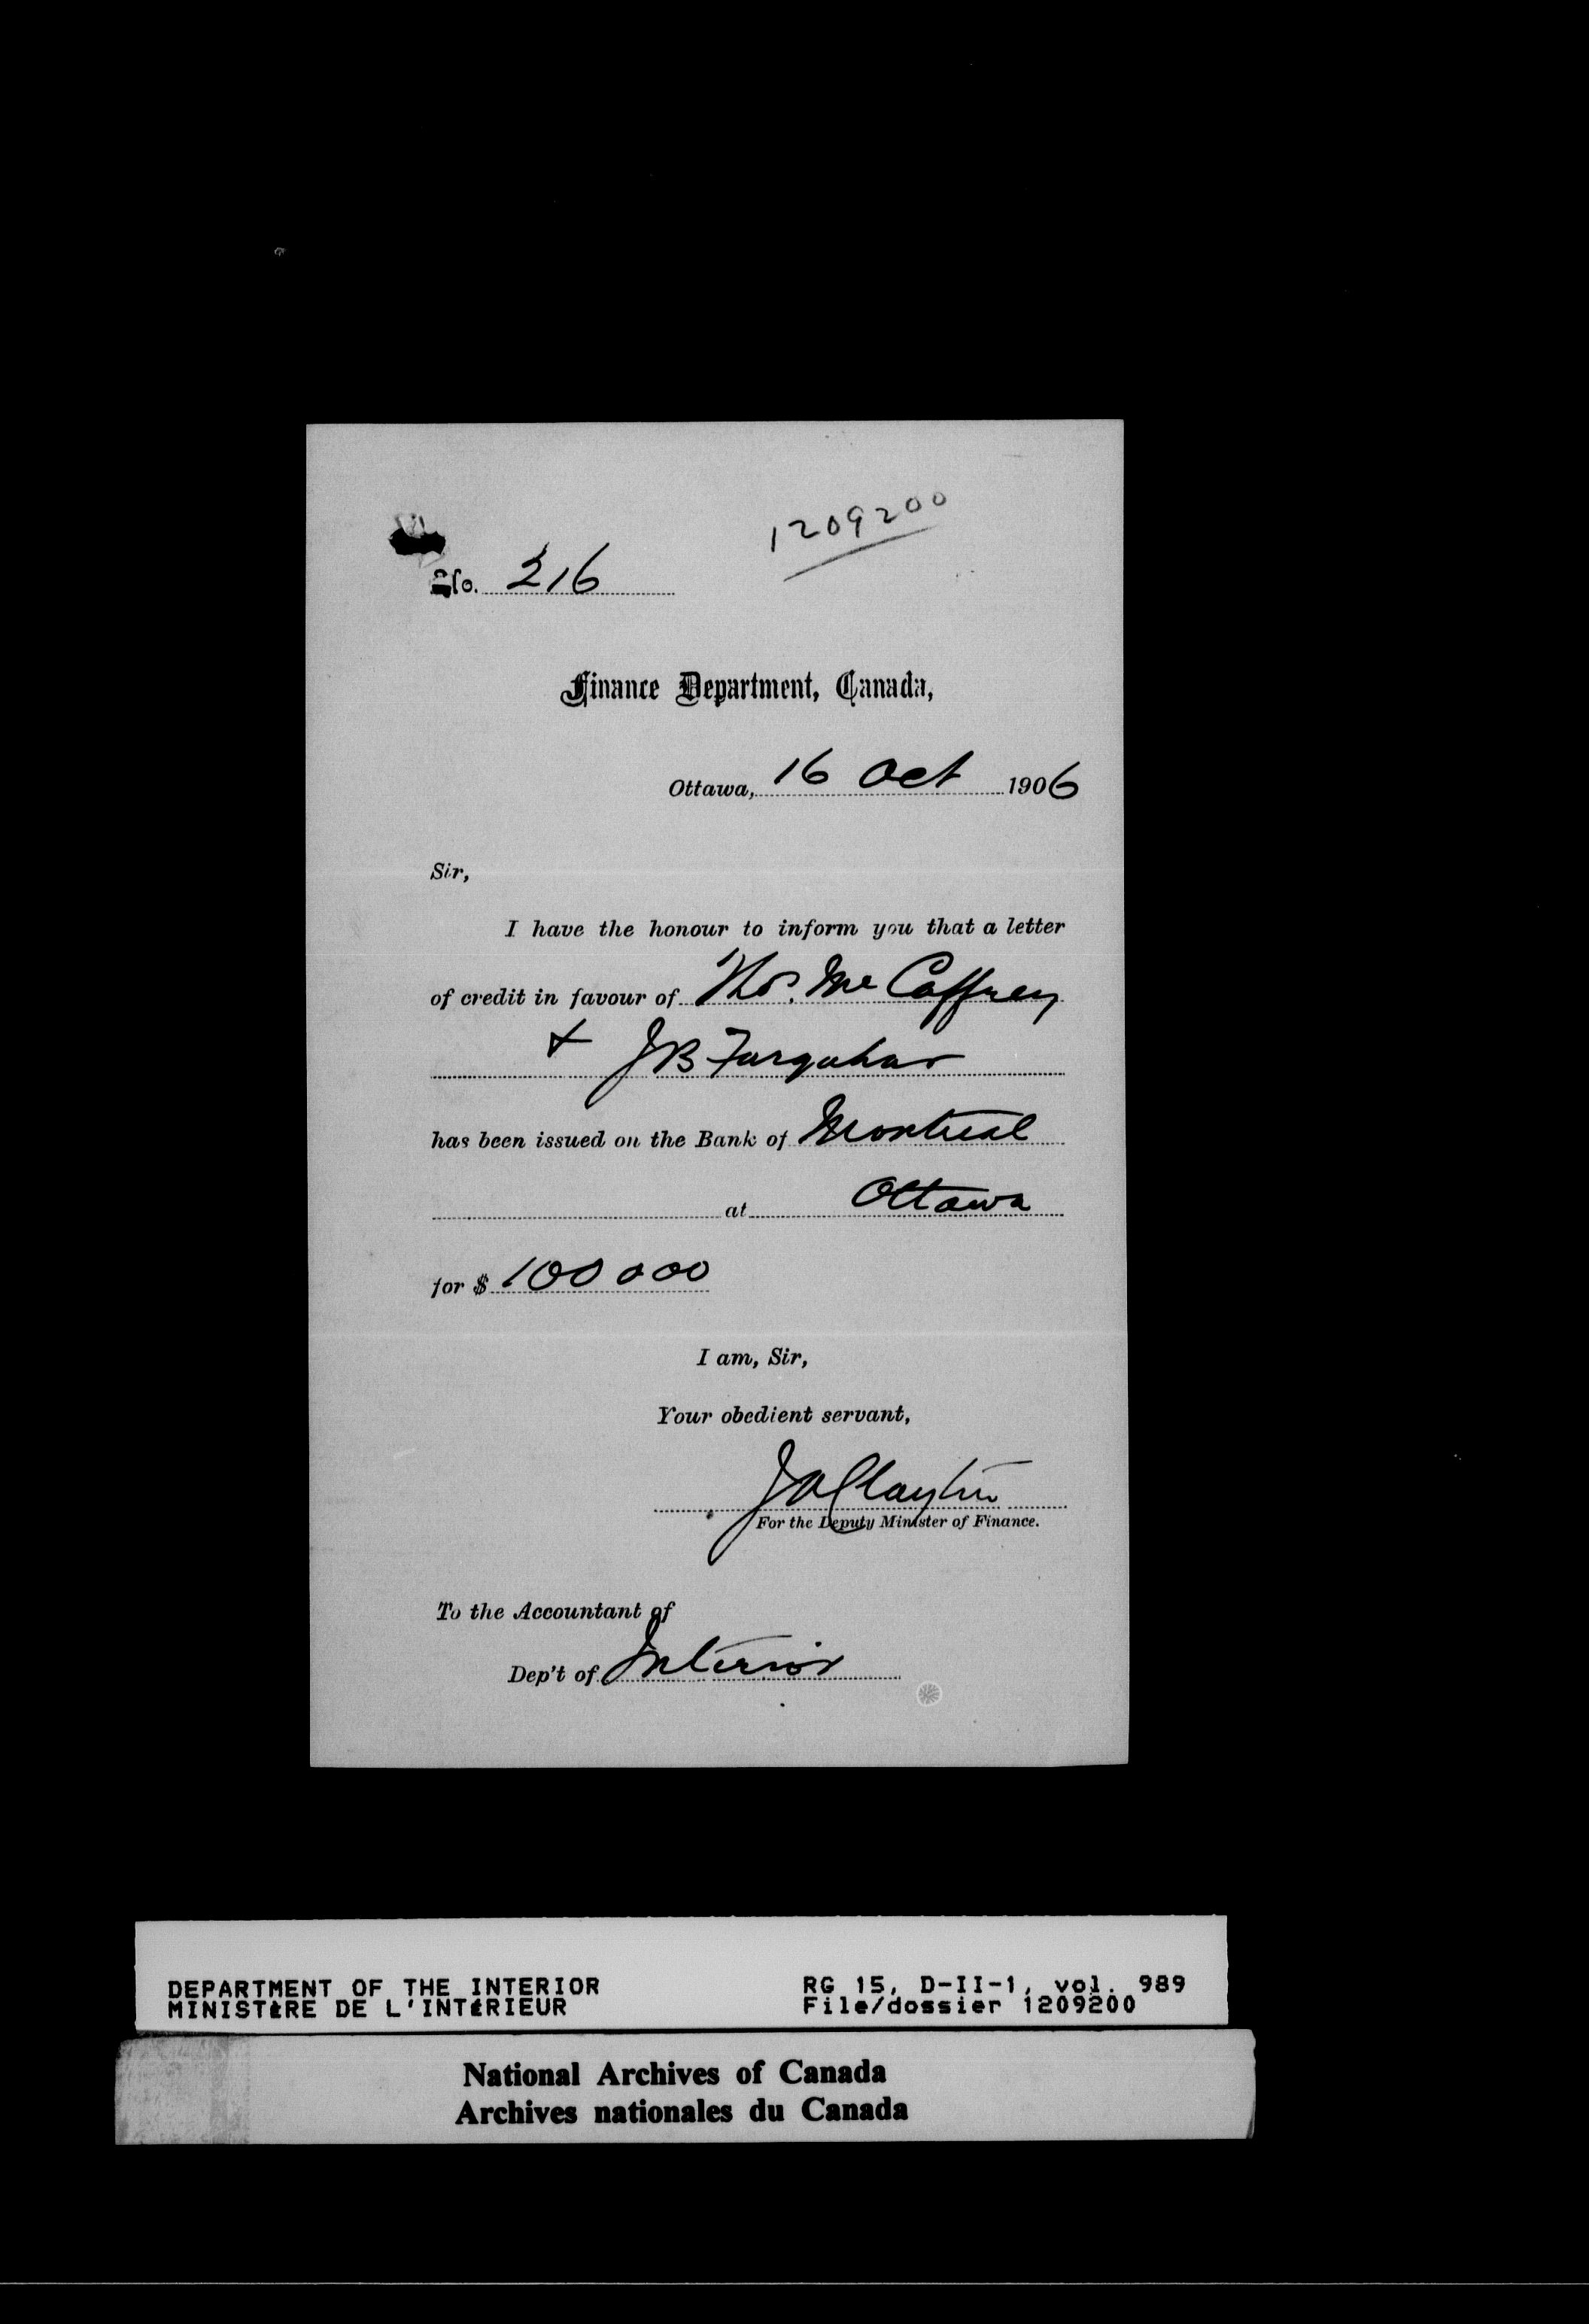 1209200
No. 216
Finance Department, Canada,
Ottawa, 16 Oct 1906
Sir,
I have the honour to inform you that a letter
of credit in favour of Thos. McCaffrey
& JB Farquhar
has been issued on the Bank of Montreal
at Ottawa
for $ 100000
I am, Sir,
Your obedient servant,
JAClayton
For the Deputy Minister of Finance.
To the Accountant of
Dep't of Interior
DEPARTMENT OF THE INTERIOR
MINISTÈRE DE L'INTÉRIEUR
RG 15, D-II-1, vol. 989
File/dossier 1209200
National Archives of Canada
Archives nationales du Canada